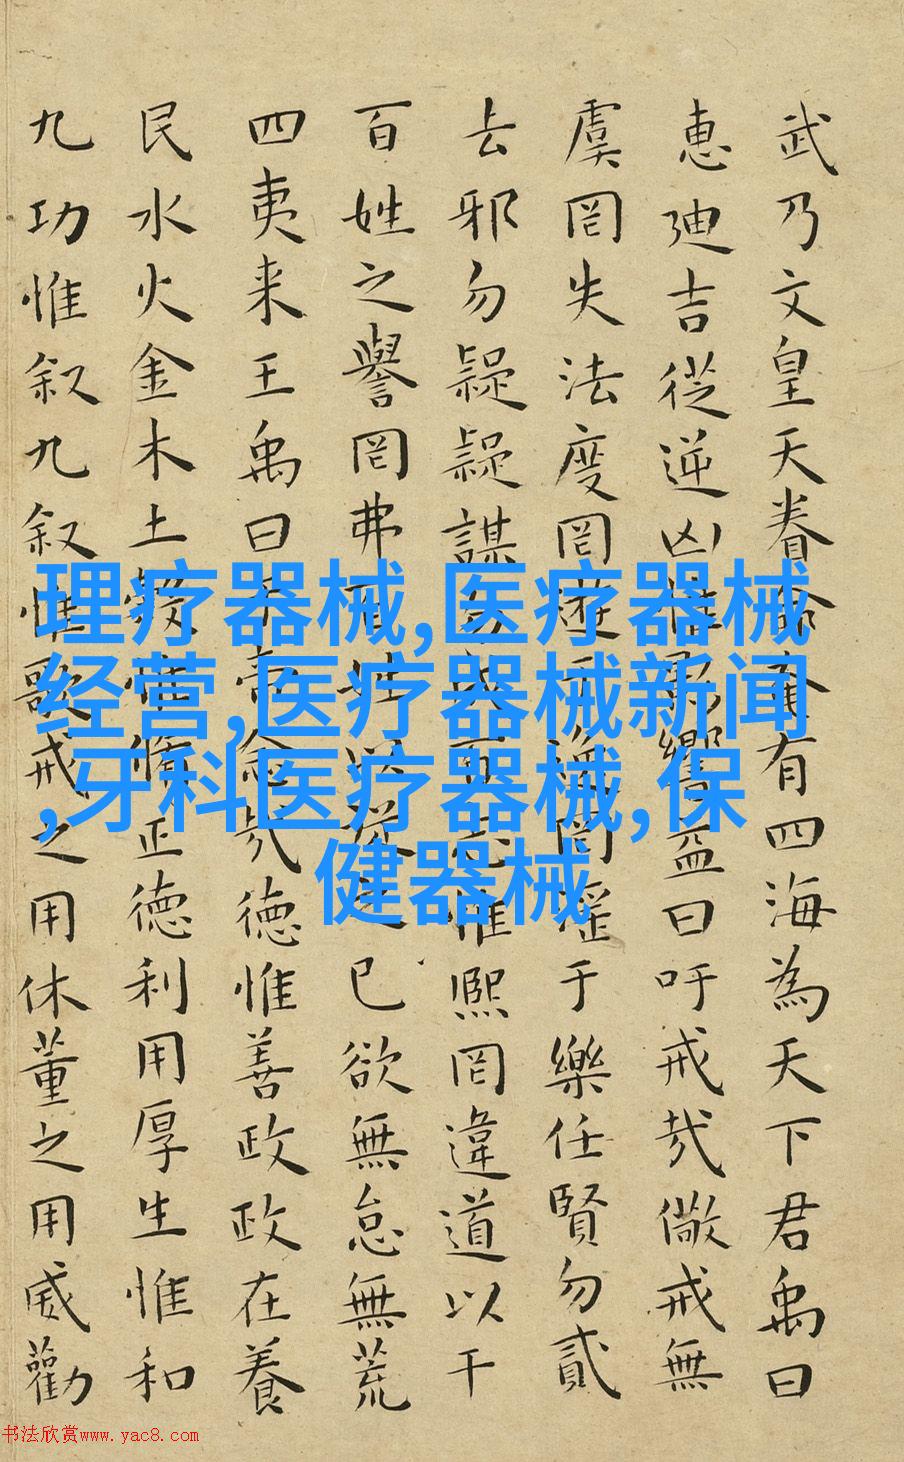 武乃文皇天眷命奄有四海為天下君禹曰
惠迪吉從逆凶惟影響益曰吁戒哉儆戒無
虞罔失法度罔遊于逸罔淫于樂任賢勿貳
去邪勿疑疑謀勿成百志惟熙罔違道以干
百姓之譽罔弗百姓以從之已欲無怠無荒
四夷来王禹曰於帝念哉德惟善政政在養
民水火金木土穀惟脩正德利用厚生惟和
九功惟叙九叙惟歌戒之用休董之用威勸
理疗器械,医疗器械
经营,医疗器械新闻
,牙科医疗器械,保
健器械
书法欣赏www.yac8.com